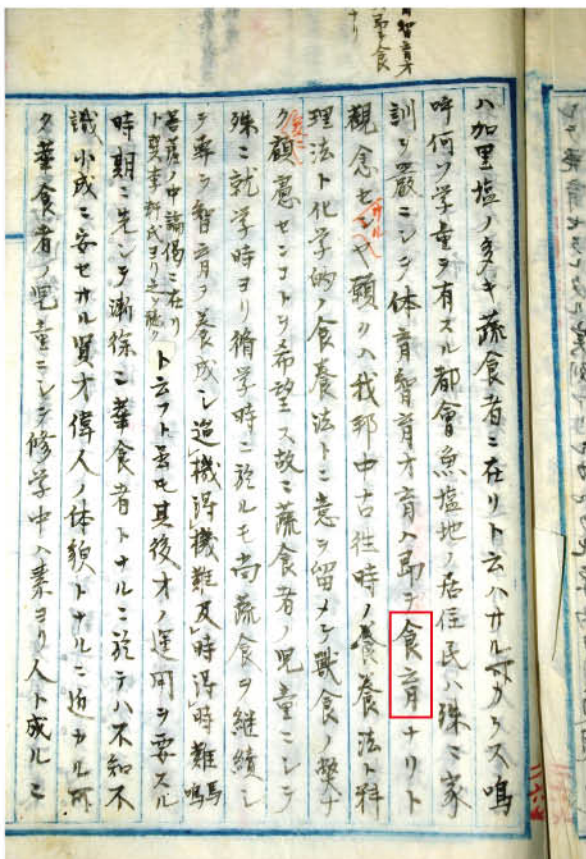 智育才
食
ナリ
ハ加里塩ノ多キ蔬食者ニ在リト云ハサル可カラス嗚
呼何ソ学童ヲ有スル都會魚塩地ノ居住民ハ殊ニ家
訓ヲ嚴ニシテ体育智育才育ハ即チ食育ナリト
観念セサルヤ我邦中古往時ノ食養法ト料
理法ト化学的ノ食養法トニ意ヲ留メテ獣食ノ弊ナ
ク顧慮センコトヲ希望ス故ニ蔬食者ノ児童ニシテ
殊ニ就学時ヨリ脩学時ニ於ルモ尚蔬食ヲ継続シ
テ専ラ智育ヲ養成シ機得機難及時得時難
ト云フト雖其後才ノ運用ヲ要スル
時期ニ先シテ漸徐ニ葷食者トナルニ於テハ不知不
識小成ニ安セサル賢才偉人ノ体貌トナルニ近カル可
ク葷食者ノ児童ニシテ修学中ハ素ヨリ人ト成ルニ